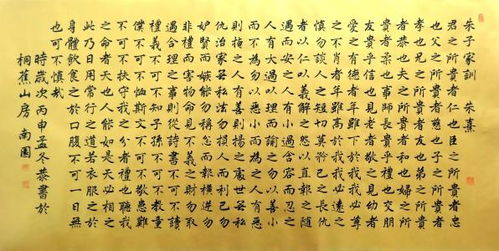 朱子家訓 朱熹
君之所貴者仁也臣之所貴者忠
也父之所貴者慈也子之所貴者
孝也兄之所貴者友也弟之所貴
者恭也夫之所貴者和也婦之所
貴者柔也事師長貴乎禮也交朋
友貴乎信也見老者敬之見幼者
愛之有德者年雖下於我我必尊
之不肖者年雖高於我我必遠之
慎勿談人之短切莫矜己之長仇
者以義解之怨者以直報之隨
遇而安之人有小過含容而忍之
人有大過以理而諭之勿以善小
而不為勿以惡小而為之人有惡
則掩之人有善則揚之處世無私
仇治家無私法勿損人而利己勿
妒賢而嫉能勿稱忿而報橫逆勿
非禮而害物命見不義之財勿取
遇合理之事則從詩書不可不讀
禮義不可不知子孫不可不教童
僕不可不恤斯文不可不敬患難
不可不扶守我之分者禮也聽我
之命者天也人能如是天必相之
此乃日用常行之道若衣服之於
身體飲食之於口腹不可一日無
也可不慎哉
時歲次丙申孟冬恭書於
桐蕉山房 南圃